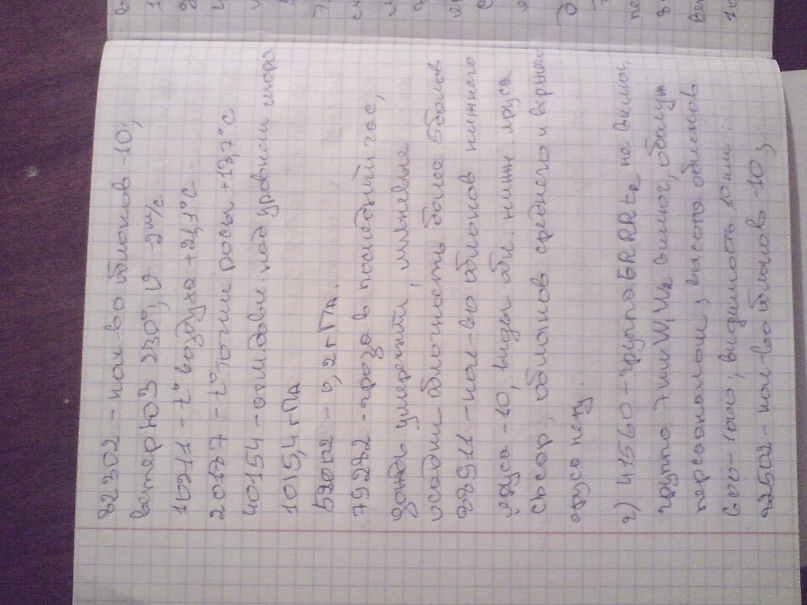 82302 - кол-во облаков -10;
ветер ЮЗ 230°, V -2 м/с
10211 - t° воздуха +21,1°C
20137 - t° точки росы +13,7°C
40154 - атм. давл. над уровнем моря
1015,4 гПа
52002 - 0,2 гПа.
79282 - гроза в последний час,
дождь умеренный, ливневые
осадки облачность более 5 баллов
88911 - кол-во облаков нижнего
яруса -10, виды обл. нижн. яруса
облаков среднего и верхнего
яруса нет.
г) 41560 - группа 6RRRtR не включ.,
группа 7wwW1W2 включ., обслуж.
персоналом, высота облаков
600-1000, видимость 10 км.
82502 - кол-во облаков -10;